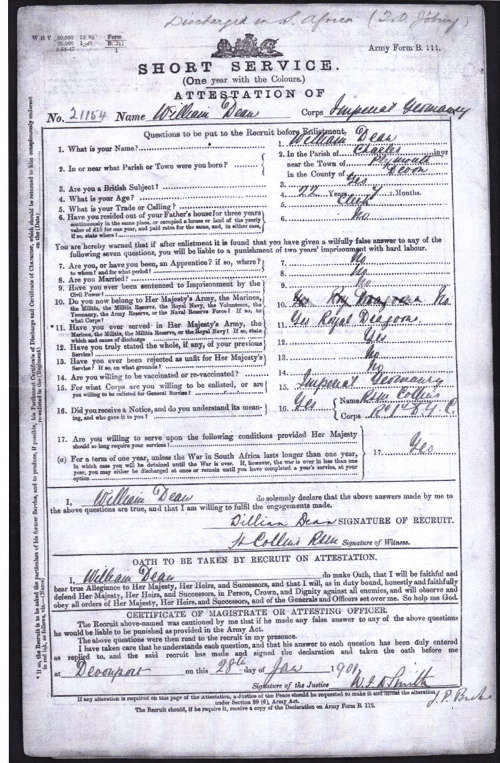 Discharged in S. Africa
Army Form B. 111.
SHORT SERVICE.
(One year with the Colours.)
ATTESTATION OF
No. 21154 Name William Dean Corps Imperial Yeomanry
Questions to be put to the Recruit before Enlistment.
1. What is your Name? 1. William Dean
2. In or near what Parish or Town were you born? 2. In the Parish of Charles in or
near the Town of Plymouth
in the County of Devon
3. Are you a British Subject? 3. Yes
4. What is your Age? 4. 22 Years Months.
5. What is your Trade or Calling? 5.
6. Have you resided out of your Father's house for three years 6. No
continuously in the same place, or occupied a house or land of the yearly
value of £10 for one year, and paid rates for the same, and, in either case,
if so, state where?
You are hereby warned that if after enlistment it is found that you have given a wilfully false answer to any of the
following seven questions, you will be liable to a punishment of two years' imprisonment with hard labour.
7. Are you, or have you been, an Apprentice? if so, where? 7. No
to whom? and for what period?
8. Are you Married? 8. No
9. Have you ever been sentenced to Imprisonment by the 9. No
Civil Power?
10. Do you now belong to Her Majesty's Army, the Marines, 10.
the Militia, the Militia Reserve, the Royal Navy, the Volunteers, the
Yeomanry, the Army Reserve, or the Naval Reserve Force? If so, to
what Corps?
*11. Have you ever served in Her Majesty's Army, the 11. Yes Royal Dragoons
Marines, the Militia, the Militia Reserve, or the Royal Navy? If so, state
which and cause of discharge
12. Have you truly stated the whole, if any, of your previous 12. Yes
Service?
13. Have you ever been rejected as unfit for Her Majesty's 13. No
Service? If so, on what grounds?
14. Are you willing to be vaccinated or re-vaccinated? 14. No
15. For what Corps are you willing to be enlisted, or are 15. Imperial Yeomanry
you willing to be enlisted for General Service?
16. Did you receive a Notice, and do you understand its mean- 16. Yes Name Collins
ing, and who gave it to you? Corps
17. Are you willing to serve upon the following conditions provided Her Majesty
should so long require your services?
(a) For a term of one year, unless the War in South Africa lasts longer than one year, 17. Yes
in which case you will be detained until the War is over. If, however, the war is over in less than one
year, you may either be discharged at once or remain until you have completed a year's service, at your
option
I, William Dean do solemnly declare that the above answers made by me to
the above questions are true, and that I am willing to fulfil the engagements made.
William Dean SIGNATURE OF RECRUIT.
Collins Signature of Witness.
OATH TO BE TAKEN BY RECRUIT ON ATTESTATION.
I, William Dean do make Oath, that I will be faithful and
bear true Allegiance to Her Majesty, Her Heirs, and Successors, and that I will, as in duty bound, honestly and faithfully
defend Her Majesty, Her Heirs, and Successors, in Person, Crown, and Dignity against all enemies, and will observe and
obey all orders of Her Majesty, Her Heirs, and Successors, and of the Generals and Officers set over me. So help me God.
CERTIFICATE OF MAGISTRATE OR ATTESTING OFFICER.
The Recruit above-named was cautioned by me that if he made any false answer to any of the above questions
he would be liable to be punished as provided in the Army Act.
The above questions were then read to the recruit in my presence.
I have taken care that he understands each question, and that his answer to each question has been duly entered
as replied to, and the said recruit has made and signed the declaration and taken the oath before me
at Devonport on this 28th day of Jan 1901
Signature of the Justice Smith
If any alteration is required on this page of the Attestation, a Justice of the Peace should be requested to make it and initial the alteration,
under Section 80 (6), Army Act.
The Recruit should, if he require it, receive a copy of the Declaration on Army Form B. 112.